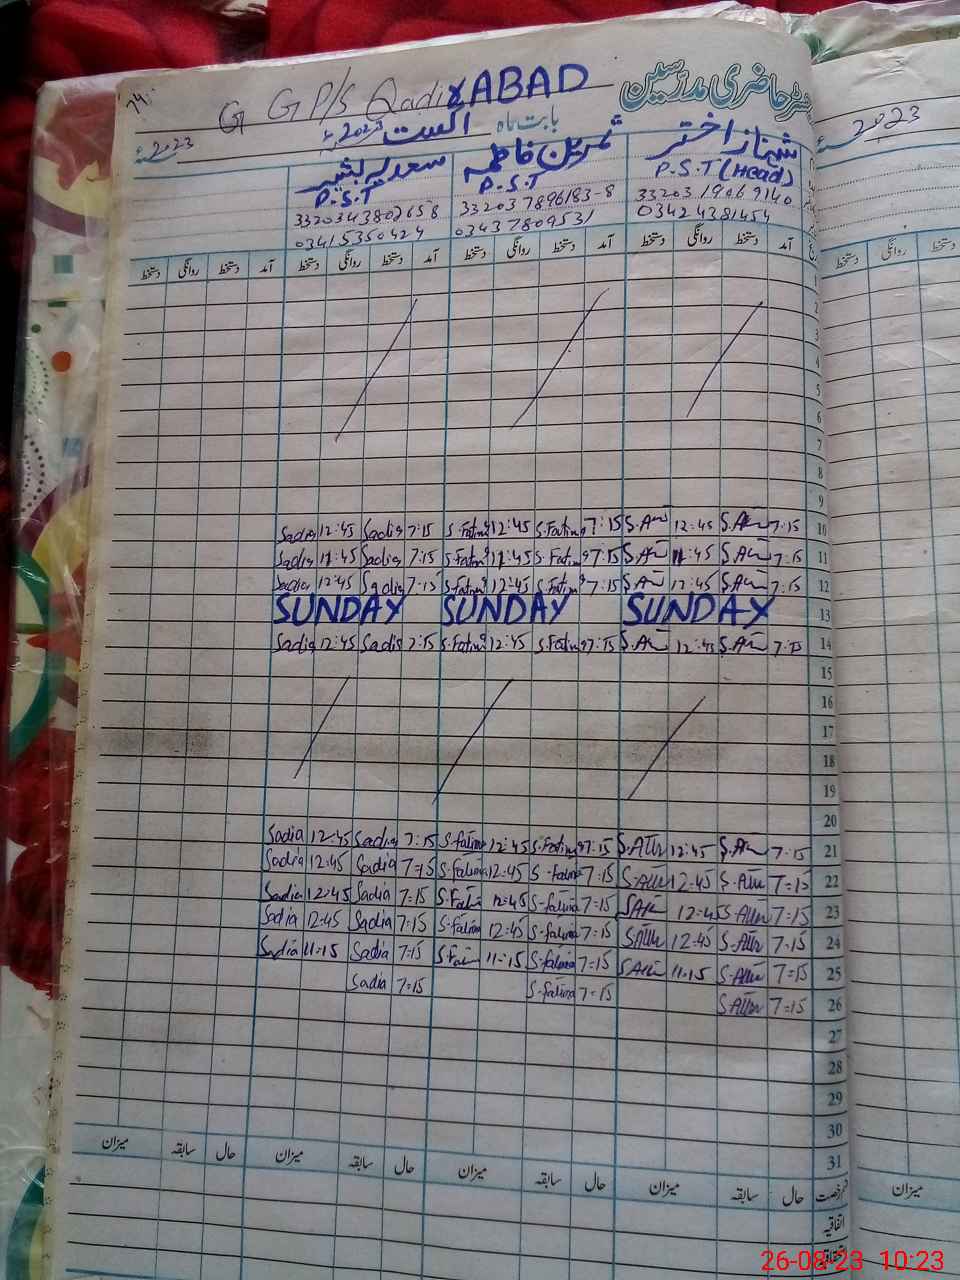 74
G G P/S QadirABAD
رجسٹر حاضری مدرسین
2023ء
بابت ماہ اگست 2023ء
2023ء
شہناز اختر ثمرین فاطمہ سعدیہ بشیر
P.S.T (Head) P.S.T P.S.T
33203 1906914 0 332037896183-8 3320343802658
03424381454 03437809531 03415350424
آمد دستخط روانگی دستخط آمد دستخط روانگی دستخط آمد دستخط روانگی دستخط آمد دستخط روانگی دستخط
دستخط روانگی دستخط
2
3
4
5
6
7
8
9
Sadia 12:45 Sadia 7:15 S.Fatima 12:45 S.Fatima 7:15 12:45 7:15 10
Sadia 11:45 Sadia 7:15 S.Fatima 11:45 S.Fatima 7:15 11:45 7:15 11
Sadia 12:45 Sadia 7:15 S.Fatima 12:45 S.Fatima 7:15 12:45 7:15 12
SUNDAY SUNDAY SUNDAY 13
Sadia 12:45 Sadia 7:15 S.Fatima 12:45 S.Fatima 7:15 12:45 7:15 14
15
16
17
18
19
20
Sadia 12:45 Sadia 7:15 S.fatima 12:45 S.Fatima 7:15 12:45 7:15 21
Sadia 12:45 Sadia 7:15 S.fatima 12:45 S.fatima 7:15 12:45 7:15 22
Sadia 12:45 Sadia 7:15 S.Fatima 12:45 S.fatima 7:15 12:45 7:15 23
Sadia 12:45 Sadia 7:15 S.fatima 12:45 S.fatima 7:15 12:45 7:15 24
Sadia 11:15 Sadia 7:15 S.Fatima 11:15 S.fatima 7:15 11:15 7:15 25
Sadia 7:15 S.fatima 7:15 7:15 26
27
28
29
30
31
قسم رخصت حال سابقہ میزان حال سابقہ میزان حال سابقہ میزان حال سابقہ میزان
میزان
اتفاقیہ
استحقاقی
26-08-23 10:23